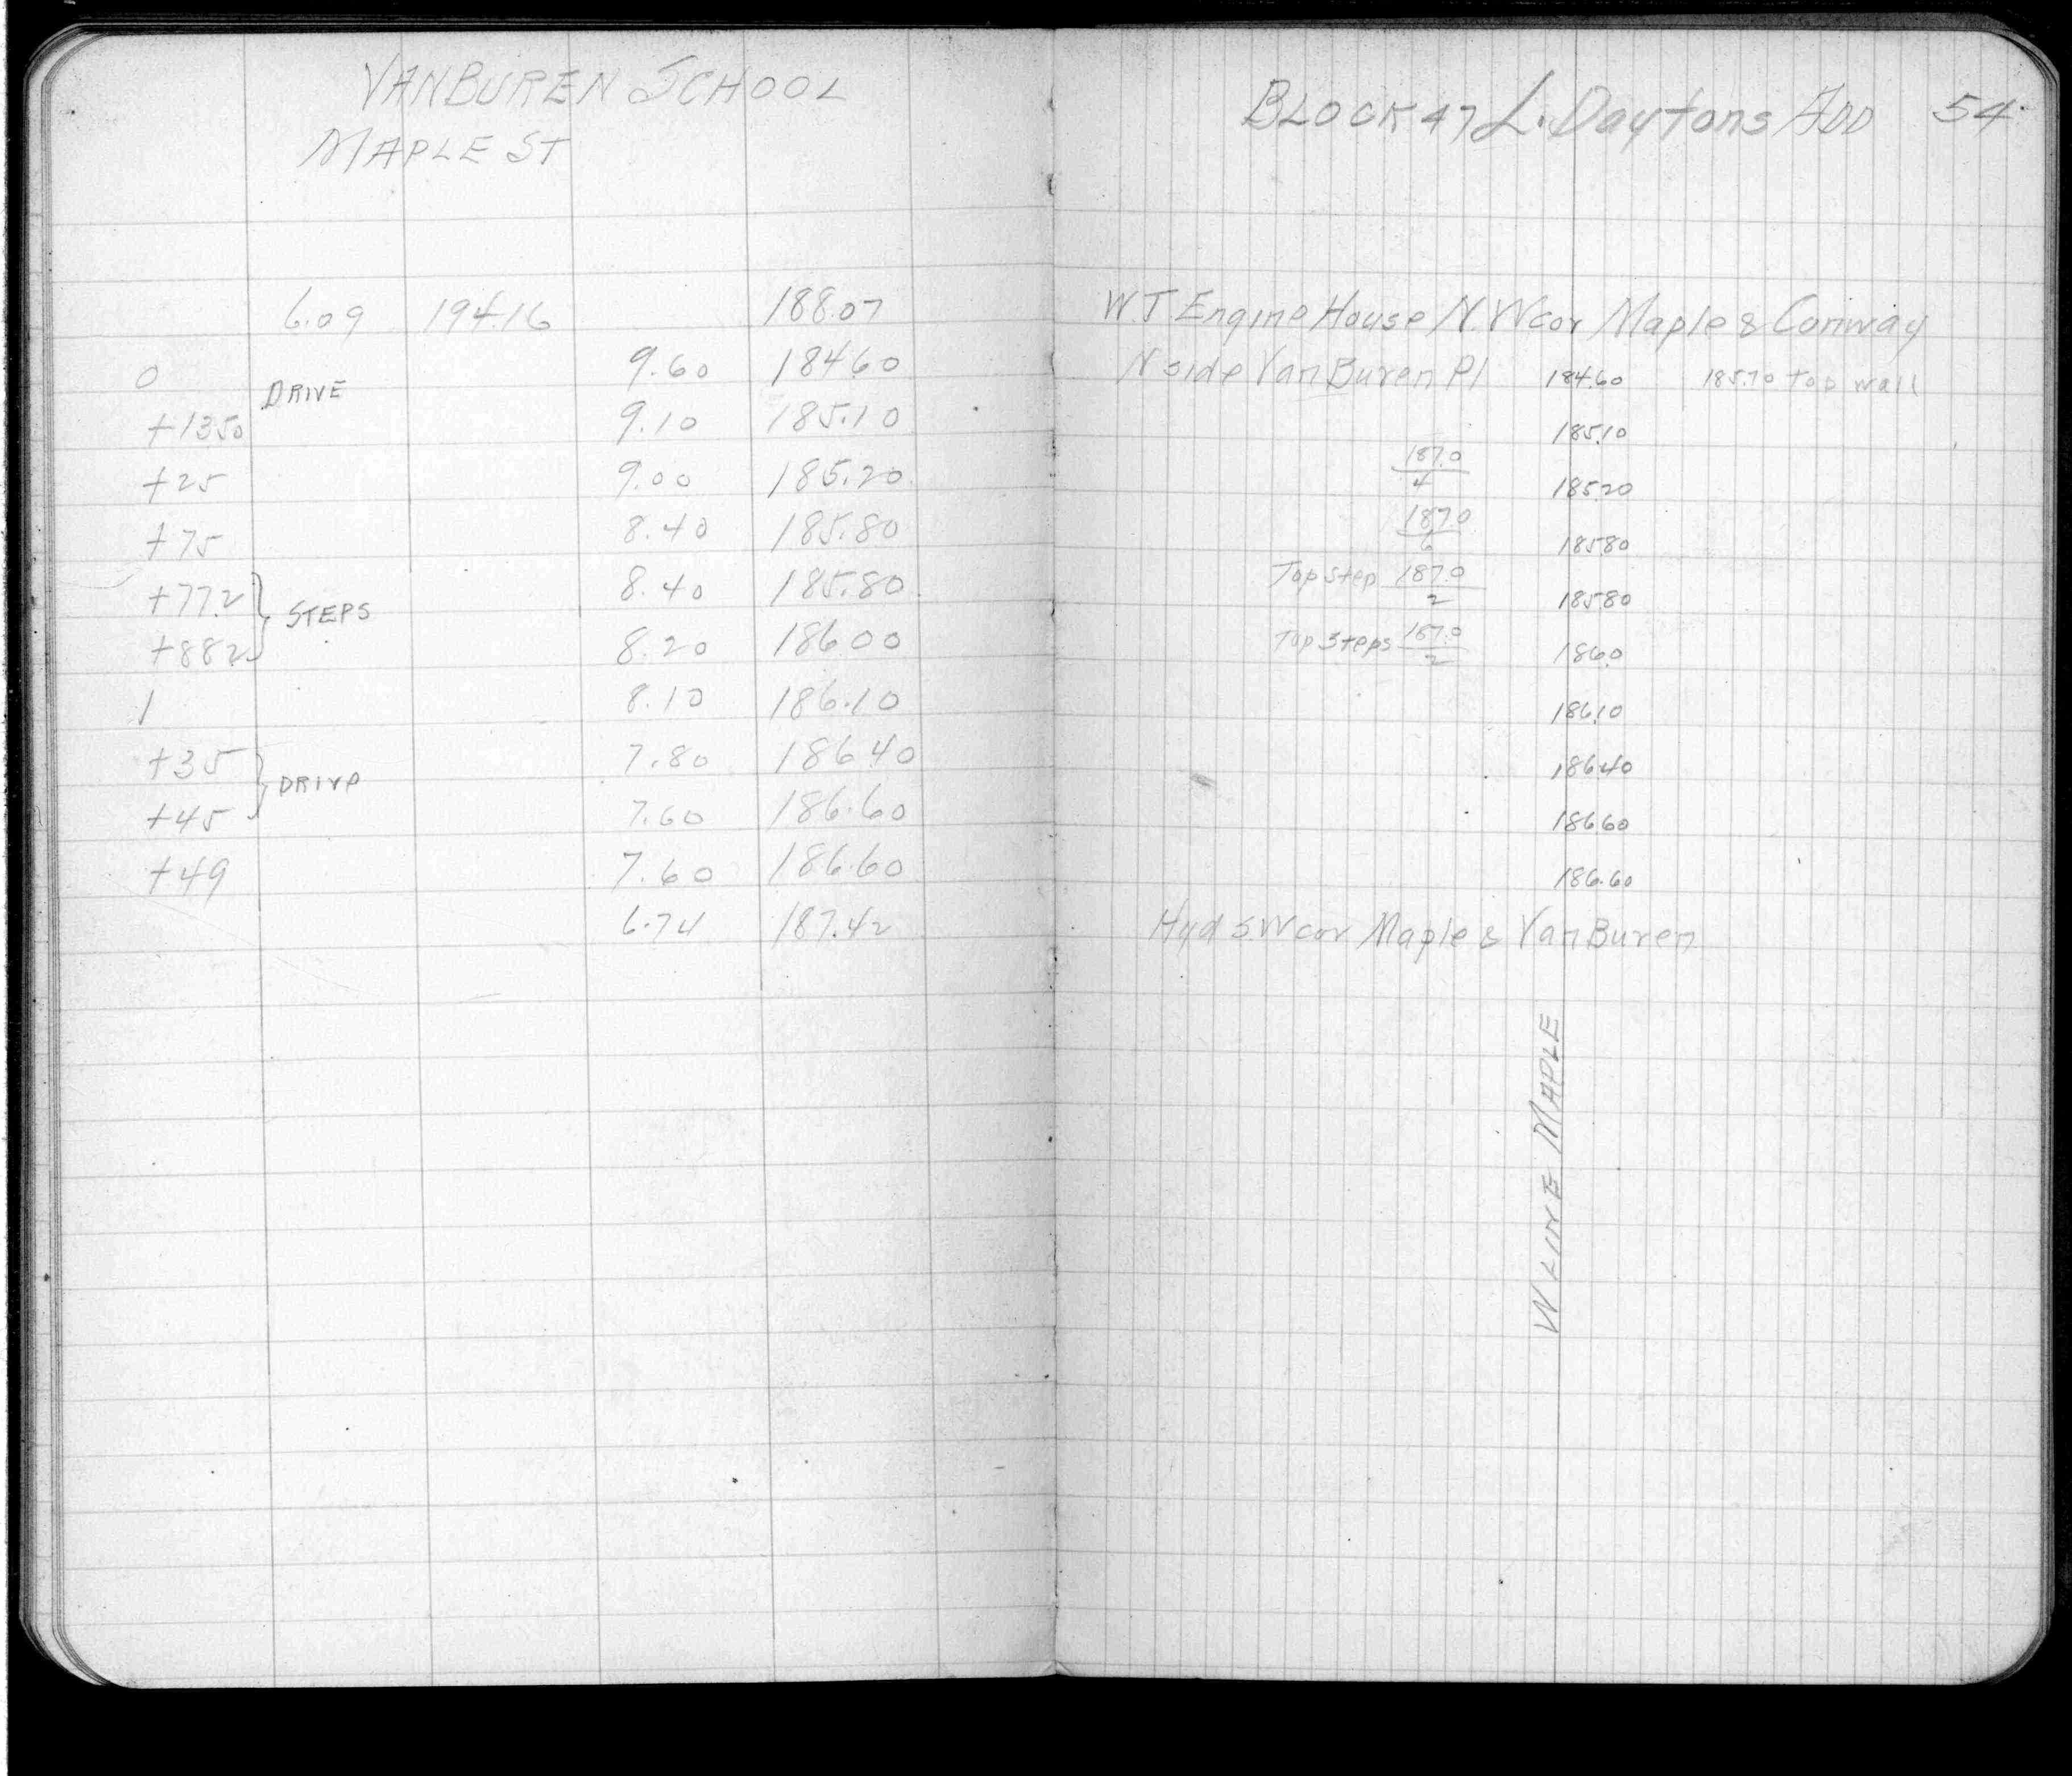 VANBUREN SCHOOL
MAPLE ST
6.09 194.16 188.07
0 9.60 184.60
DRIVE
+1350 9.10 185.10
+25 9.00 185.20
+75 8.40 185.80
+77.2 8.40 185.80
STEPS
+882 8.20 186.00
1 8.10 186.10
+35 7.80 186.40
DRIVE
+45 7.60 186.60
+49 7.60 186.60
6.74 187.42
BLOCK 47 L. Daytons ADD 54
W.T Engine House N.W cor Maple & Conway
N side Van Buren Pl 184.60 185.70 top wall
185.10
187.0
4 185.20
187.0
6 185.80
Top step 187.0
2 185.80
Top Steps 187.0
2 186.0
186.10
186.40
186.60
186.60
Hyd S.W cor Maple & Van Buren
W LINE MAPLE